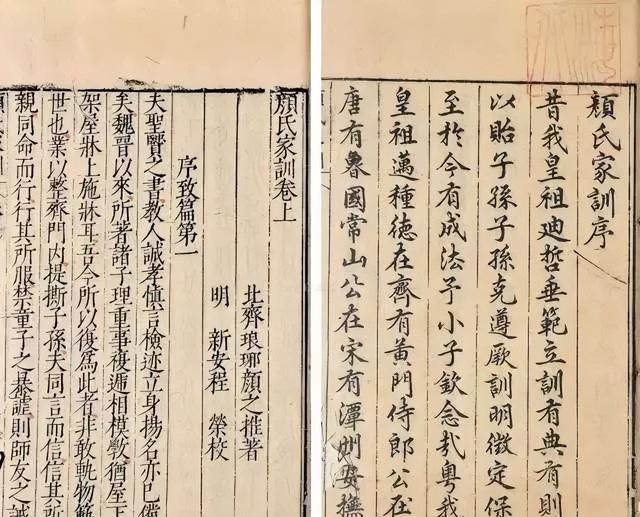 顏氏家訓序
昔我皇祖迪哲垂範立訓有典有則
以貽子孫子孫克遵厥訓明徵定保
至於今有成法予小子欽念哉粵我
皇祖邁種德在齊有黃門侍郎公在
唐有魯國常山公在宋有潭州安撫
顏氏家訓卷上
北齊琅琊顏之推著
明 新安程 榮校
序致篇第一
夫聖賢之書教人誠孝慎言檢迹立身揚名亦已備
矣魏晉以來所著諸子理重事複遞相模斆猶屋下
架屋牀上施牀耳吾今所以復爲此者非敢軌物範
世也業以整齊門内提撕子孫夫同言而信信其所
親同命而行行其所服禁童子之暴謔則師友之誡